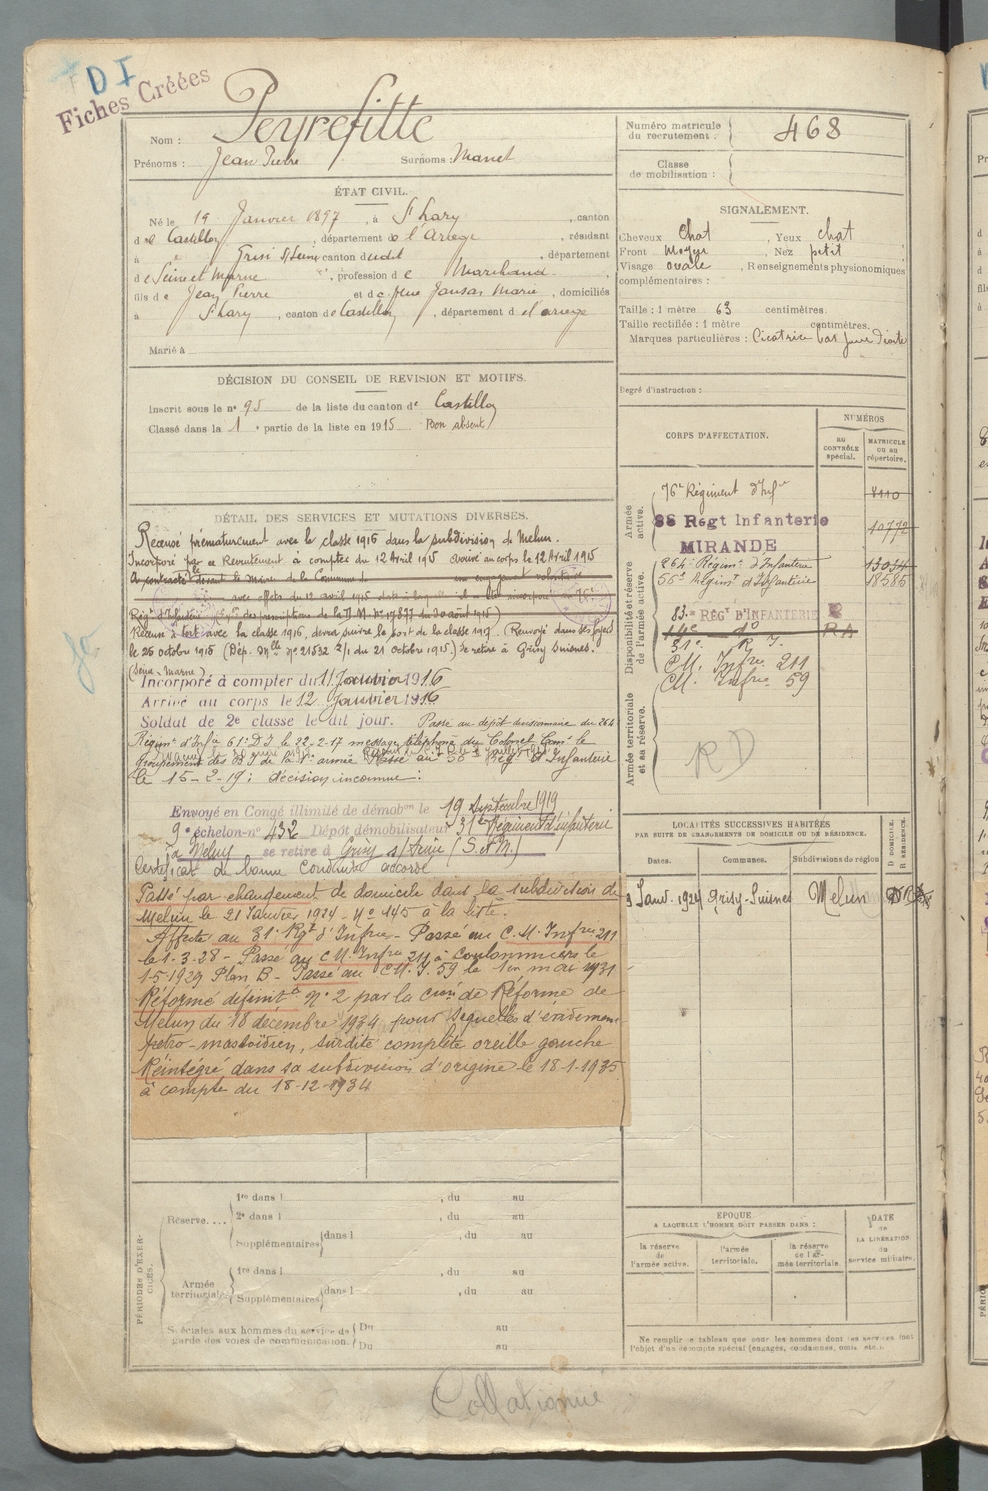 DI
Fiches Créées
Nom : Peyrefitte
Prénoms : Jean Pierre Surnoms : Manet
Numéro matricule du recrutement : 468
Classe de mobilisation :
ÉTAT CIVIL.
Né le 19 Janvier 1897, à St Lary, canton
de Castillon, département de l'Ariège, résidant
à Grisi S/Seine canton dudit, département
de Seine et Marne, profession de Marchand
fils de Jean Pierre et de feue Jansas Marie, domiciliés
à St Lary, canton de Castillon, département de l'ariège
Marié à
SIGNALEMENT.
Cheveux Chat, Yeux chat
Front moyen, Nez petit
Visage ovale, Renseignements physionomiques
complémentaires :
Taille : 1 mètre 63 centimètres.
Taille rectifiée : 1 mètre centimètres.
Marques particulières : Cicatrice bas joue droite
Degré d'instruction :
DÉCISION DU CONSEIL DE REVISION ET MOTIFS.
Inscrit sous le n° 95 de la liste du canton de Castillon
Classé dans la 1e partie de la liste en 1915 Bon absent
CORPS D'AFFECTATION.
NUMÉROS
AU CONTRÔLE spécial.
MATRICULE ou au répertoire.
Armée active.
76e Régiment d'Infie 8110
88 Régt Infanterie 10772
MIRANDE
Disponibilité et réserve de l'armée active.
264e Régimt d'Infanterie 13034
56e Régimt d'Infanterie 18585
83e REGt D'INFANTERIE
14e do RA
31e R. I.
CM. Infie 211
CM. Infie 59
Armée territoriale et sa réserve.
RD
DÉTAIL DES SERVICES ET MUTATIONS DIVERSES.
Recensé prématurement avec la classe 1916 dans la subdivision de Melun.
Incorporé par ce Recrutement à compter du 12 Avril 1915 arrivé au corps le 12 Avril 1915
A contracté devant le Maire de la Commune d un engagement volontaire
avec effets du 12 avril 1915
Régt d'Infanterie
Recensé à tort avec la classe 1916, devra suivre le sort de la classe 1917. Renvoyé dans ses foyers
le 26 octobre 1915 (Dép. Mlle No 21532 2/1 du 21 octobre 1915) se retire à Grisy Suisnes.
(Seine-Marne)
Incorporé à compter du 11 Janvier 1916
Arrivé au corps le 12 Janvier 1916
Soldat de 2e classe le dit jour. Passé au dépôt divisionnaire du 264
Régimt d'Infie 61e DI le 22-2-17 message téléphoné du Colonel Comt le
groupement des DI de la 1e armée Passé au 56e Régt d'Infanterie
le 15-2-19; décision inconnue :
Envoyé en Congé illimité de démobon le 19 Septembre 1919
9e échelon-n° 432 Dépôt démobilisateur 31e Régiment d'infanterie
à Melun se retire à Grisy s/ Seine (S. et M.)
Certificat de bonne Conduite accordé
Passé par changement de domicile dans la subdivision de
Melun le 21 Janvier 1924 - No 145 à la liste.
Affecté au 31e Rgt d'Infie - Passé au C.M. Infie 211
le 1-3-28 - Passé au CM Infie 211 à Coulommiers le
1-5-1929 Plan B - Passé au CM. I. 59 le 1er mai 1931
Réformé définitt No 2 par la Cion de Réforme de
Melun du 18 décembre 1934 pour séquelles d'évidement
pétro-mastoïdien, surdité complète oreille gauche
Réintégré dans sa subdivision d'origine le 18-1-1935
à compter du 18-12-1934
LOCALITÉS SUCCESSIVES HABITÉES
PAR SUITE DE CHANGEMENTS DE DOMICILE OU DE RÉSIDENCE.
Dates. Communes. Subdivisions de région D DOMICILE. R RÉSIDENCE.
9 Janv. 1924 Grisy-Suisnes Melun
PÉRIODES D'EXERCICES.
Réserve....
1re dans l , du au
2e dans l , du au
Supplémentaires dans l , du au
Armée territoriale
1re dans l , du au
Supplémentaires dans l , du au
Spéciales aux hommes du service de garde des voies de communication.
Du au
Du au
EPOQUE
A LAQUELLE L'HOMME DOIT PASSER DANS :
la réserve de l'armée active.
l'armée territoriale.
la réserve de l'armée territoriale.
DATE de LA LIBÉRATION du service militaire.
Ne remplir ce tableau que pour les hommes dont les services font
l'objet d'un décompte spécial (engagés, condamnés, omis, etc.).
Collationné